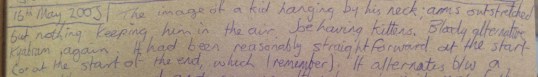 16th May 2005 | The image of a kid hanging by his neck - arms outstretched
but nothing keeping him in the air. Joe having kittens. alternative
again. It had been reasonably straightforward at the start
(or at the start of the end, which I remember). It alternates b/w a